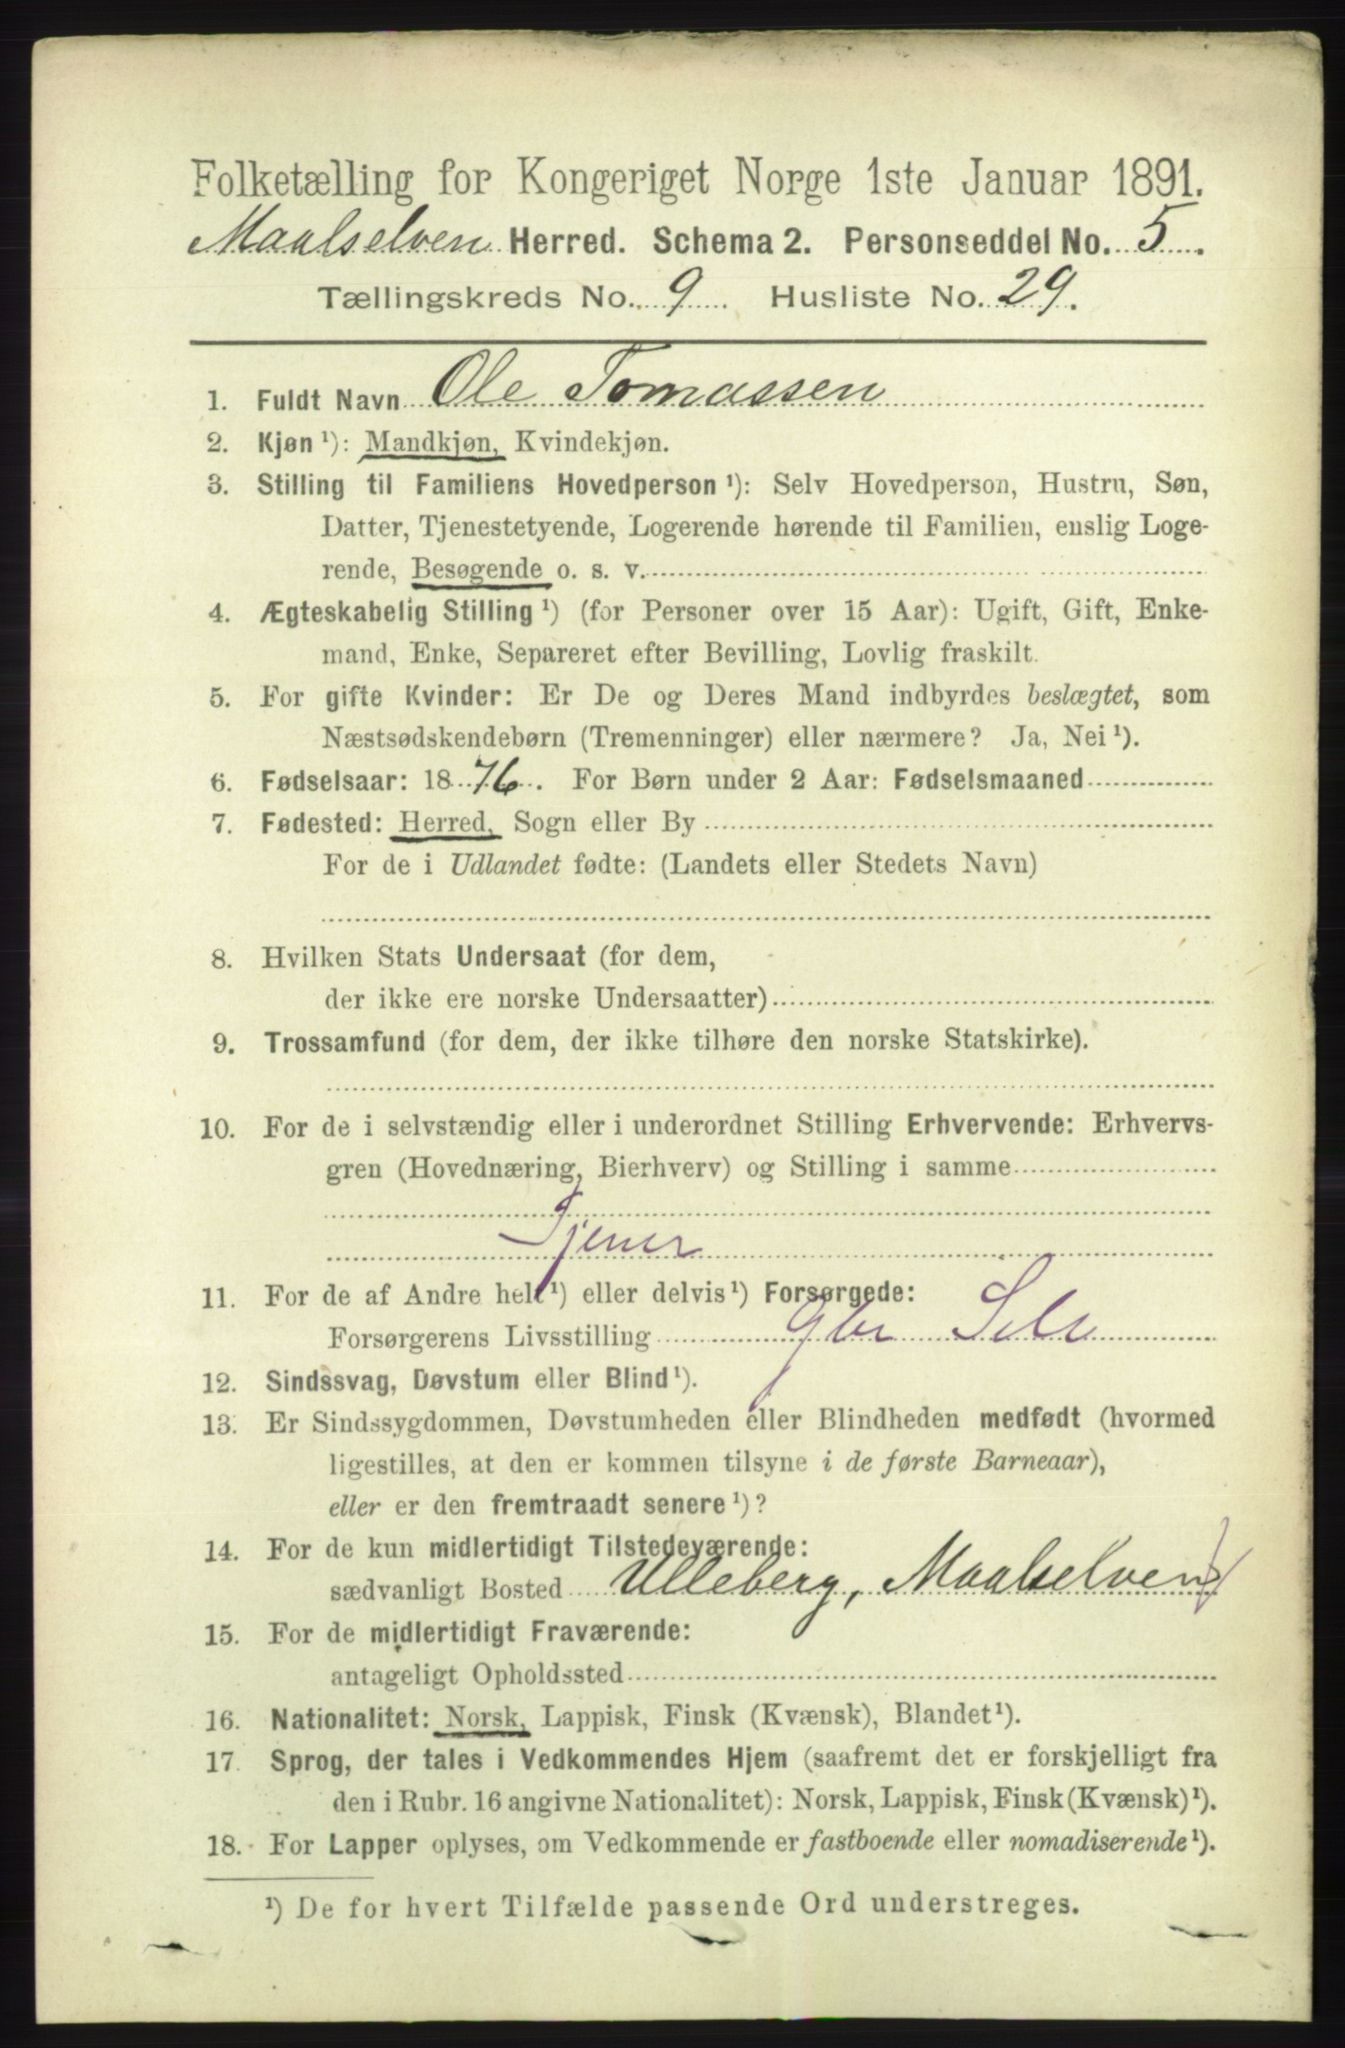 Folketælling for Kongeriget Norge 1ste Januar 1891.
Maalselven Herred. Schema 2. Personseddel No. 5.
Tællingskreds No. 9. Husliste No. 29.
1. Fuldt Navn Ole Tomassen
2. Kjøn ¹): Mandkjøn, Kvindekjøn.
3. Stilling til Familiens Hovedperson ¹): Selv Hovedperson, Hustru, Søn,
Datter, Tjenestetyende, Logerende hørende til Familien, enslig Loge-
rende, Besøgende o. s. v.
4. Ægteskabelig Stilling ¹) (for Personer over 15 Aar): Ugift, Gift, Enke-
mand, Enke, Separeret efter Bevilling, Lovlig fraskilt.
5. For gifte Kvinder: Er De og Deres Mand indbyrdes beslægtet, som
Næstsødskendebørn (Tremenninger) eller nærmere? Ja, Nei ¹).
6. Fødselsaar: 1876. For Børn under 2 Aar: Fødselsmaaned
7. Fødested: Herred, Sogn eller By
For de i Udlandet fødte: (Landets eller Stedets Navn)
8. Hvilken Stats Undersaat (for dem,
der ikke ere norske Undersaatter)
9. Trossamfund (for dem, der ikke tilhøre den norske Statskirke).
10. For de i selvstændig eller i underordnet Stilling Erhvervende: Erhvervs-
gren (Hovednæring, Bierhverv) og Stilling i samme
Tjener
11. For de af Andre helt ¹) eller delvis ¹) Forsørgede:
Forsørgerens Livsstilling Gbr
12. Sindssvag, Døvstum eller Blind ¹).
13. Er Sindssygdommen, Døvstumheden eller Blindheden medfødt (hvormed
ligestilles, at den er kommen tilsyne i de første Barneaar),
eller er den fremtraadt senere ¹)?
14. For de kun midlertidigt Tilstedeværende:
sædvanligt Bosted Ulleberg, Maalselven
15. For de midlertidigt Fraværende:
antageligt Opholdssted
16. Nationalitet: Norsk, Lappisk, Finsk (Kvænsk), Blandet ¹).
17. Sprog, der tales i Vedkommendes Hjem (saafremt det er forskjelligt fra
den i Rubr. 16 angivne Nationalitet): Norsk, Lappisk, Finsk (Kvænsk) ¹).
18. For Lapper oplyses, om Vedkommende er fastboende eller nomadiserende ¹).
¹) De for hvert Tilfælde passende Ord understreges.